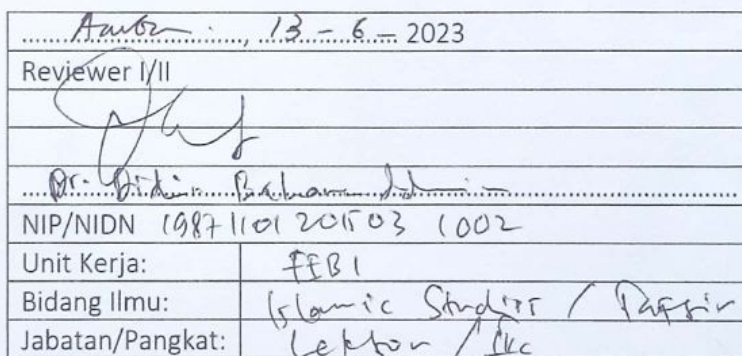 Ambon, 13 - 6 - 2023
Reviewer I/II
Dr. Didin Baharuddin
NIP/NIDN 19871101 201503 1002
Unit Kerja: FEBI
Bidang Ilmu: Islamic Studies / Tafsir
Jabatan/Pangkat: Lektor /